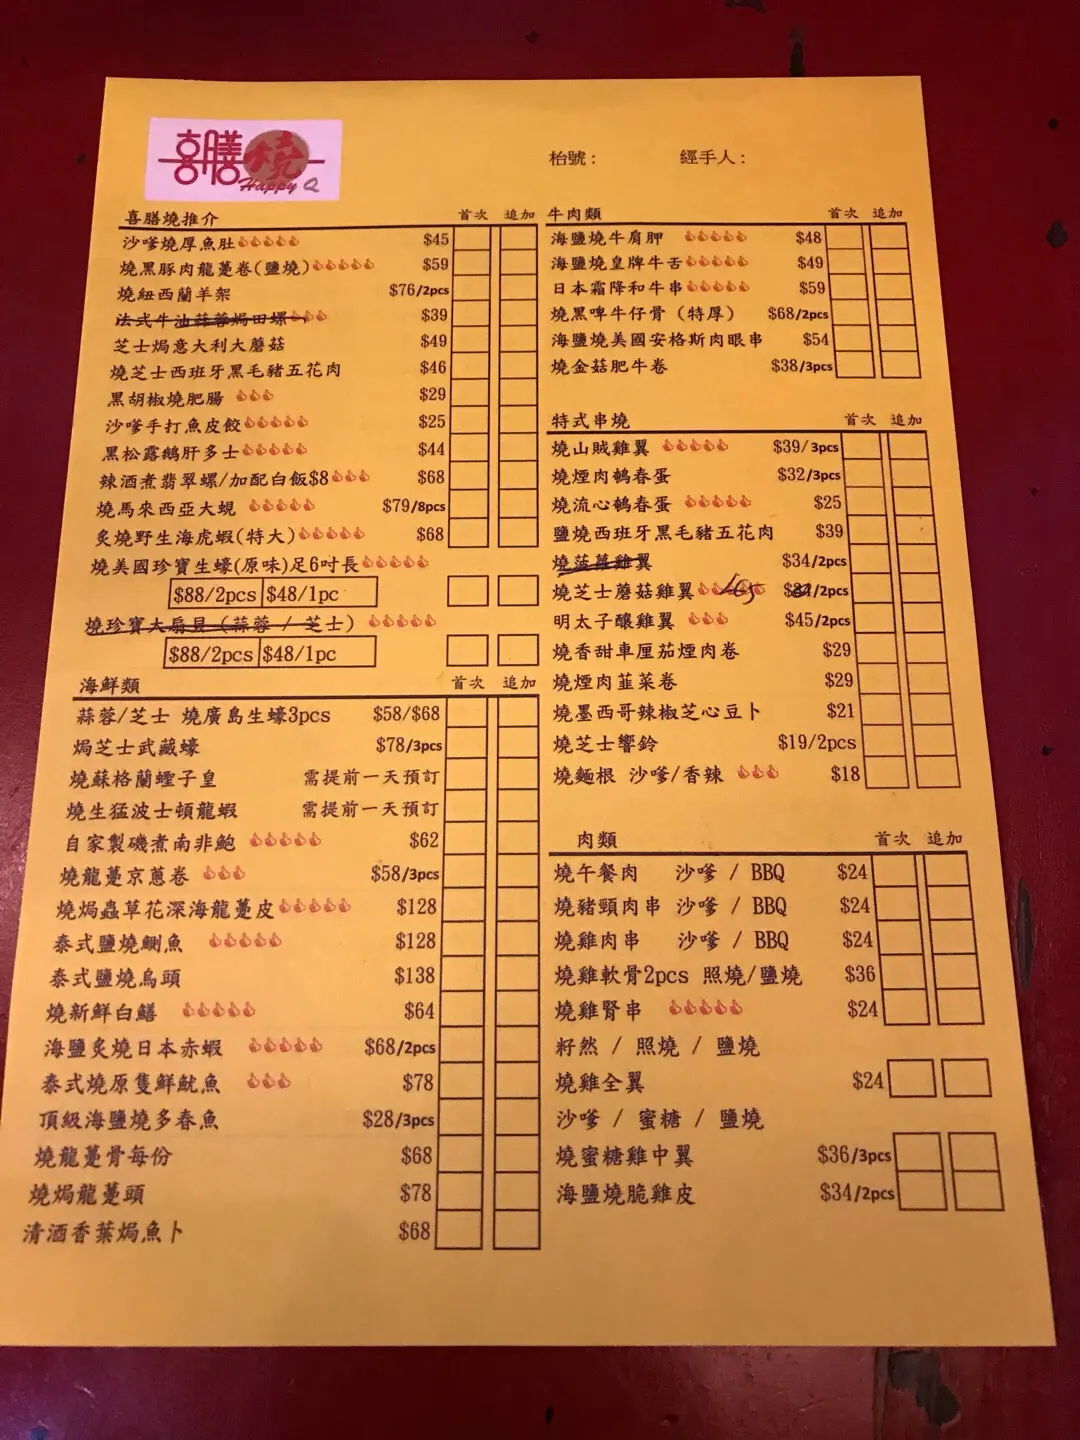 喜膳燒
Happy Q
枱號： 經手人：
喜膳燒推介 首次 追加
沙嗲燒厚魚肚 $45
燒黑豚肉龍躉卷(鹽燒) $59
燒紐西蘭羊架 $76/2pcs
法式牛油蒜蓉焗田螺 $39
芝士焗意大利大蘑菇 $49
燒芝士西班牙黑毛豬五花肉 $46
黑胡椒燒肥腸 $29
沙嗲手打魚皮餃 $25
黑松露鵝肝多士 $44
辣酒煮翡翠螺/加配白飯$8 $68
燒馬來西亞大蜆 $79/8pcs
炙燒野生海虎蝦(特大) $68
燒美國珍寶生蠔(原味)足6吋長
$88/2pcs $48/1pc
燒珍寶大扇貝（蒜蓉 / 芝士）
$88/2pcs $48/1pc
海鮮類 首次 追加
蒜蓉/芝士 燒廣島生蠔3pcs $58/$68
焗芝士武藏蠔 $78/3pcs
燒蘇格蘭蟶子皇 需提前一天預訂
燒生猛波士頓龍蝦 需提前一天預訂
自家製磯煮南非鮑 $62
燒龍躉京蔥卷 $58/3pcs
燒焗蟲草花深海龍躉皮 $128
泰式鹽燒鰂魚 $128
泰式鹽燒烏頭 $138
燒新鮮白鱔 $64
海鹽炙燒日本赤蝦 $68/2pcs
泰式燒原隻鮮魷魚 $78
頂級海鹽燒多春魚 $28/3pcs
燒龍躉骨每份 $68
燒焗龍躉頭 $78
清酒香葉焗魚卜 $68
牛肉類 首次 追加
海鹽燒牛肩胛 $48
海鹽燒皇牌牛舌 $49
日本霜降和牛串 $59
燒黑啤牛仔骨（特厚） $68/2pcs
海鹽燒美國安格斯肉眼串 $54
燒金菇肥牛卷 $38/3pcs
特式串燒 首次 追加
燒山賊雞翼 $39/3pcs
燒煙肉鵪春蛋 $32/3pcs
燒流心鵪春蛋 $25
鹽燒西班牙黑毛豬五花肉 $39
燒菠蘿雞翼 $34/2pcs
燒芝士蘑菇雞翼 /2pcs
明太子釀雞翼 $45/2pcs
燒香甜車厘茄煙肉卷 $29
燒煙肉韮菜卷 $29
燒墨西哥辣椒芝心豆卜 $21
燒芝士響鈴 $19/2pcs
燒麵根 沙嗲/香辣 $18
肉類 首次 追加
燒午餐肉 沙嗲 / BBQ $24
燒豬頸肉串 沙嗲 / BBQ $24
燒雞肉串 沙嗲 / BBQ $24
燒雞軟骨2pcs 照燒/鹽燒 $36
燒雞腎串 $24
籽然 / 照燒 / 鹽燒
燒雞全翼 $24
沙嗲 / 蜜糖 / 鹽燒
燒蜜糖雞中翼 $36/3pcs
海鹽燒脆雞皮 $34/2pcs